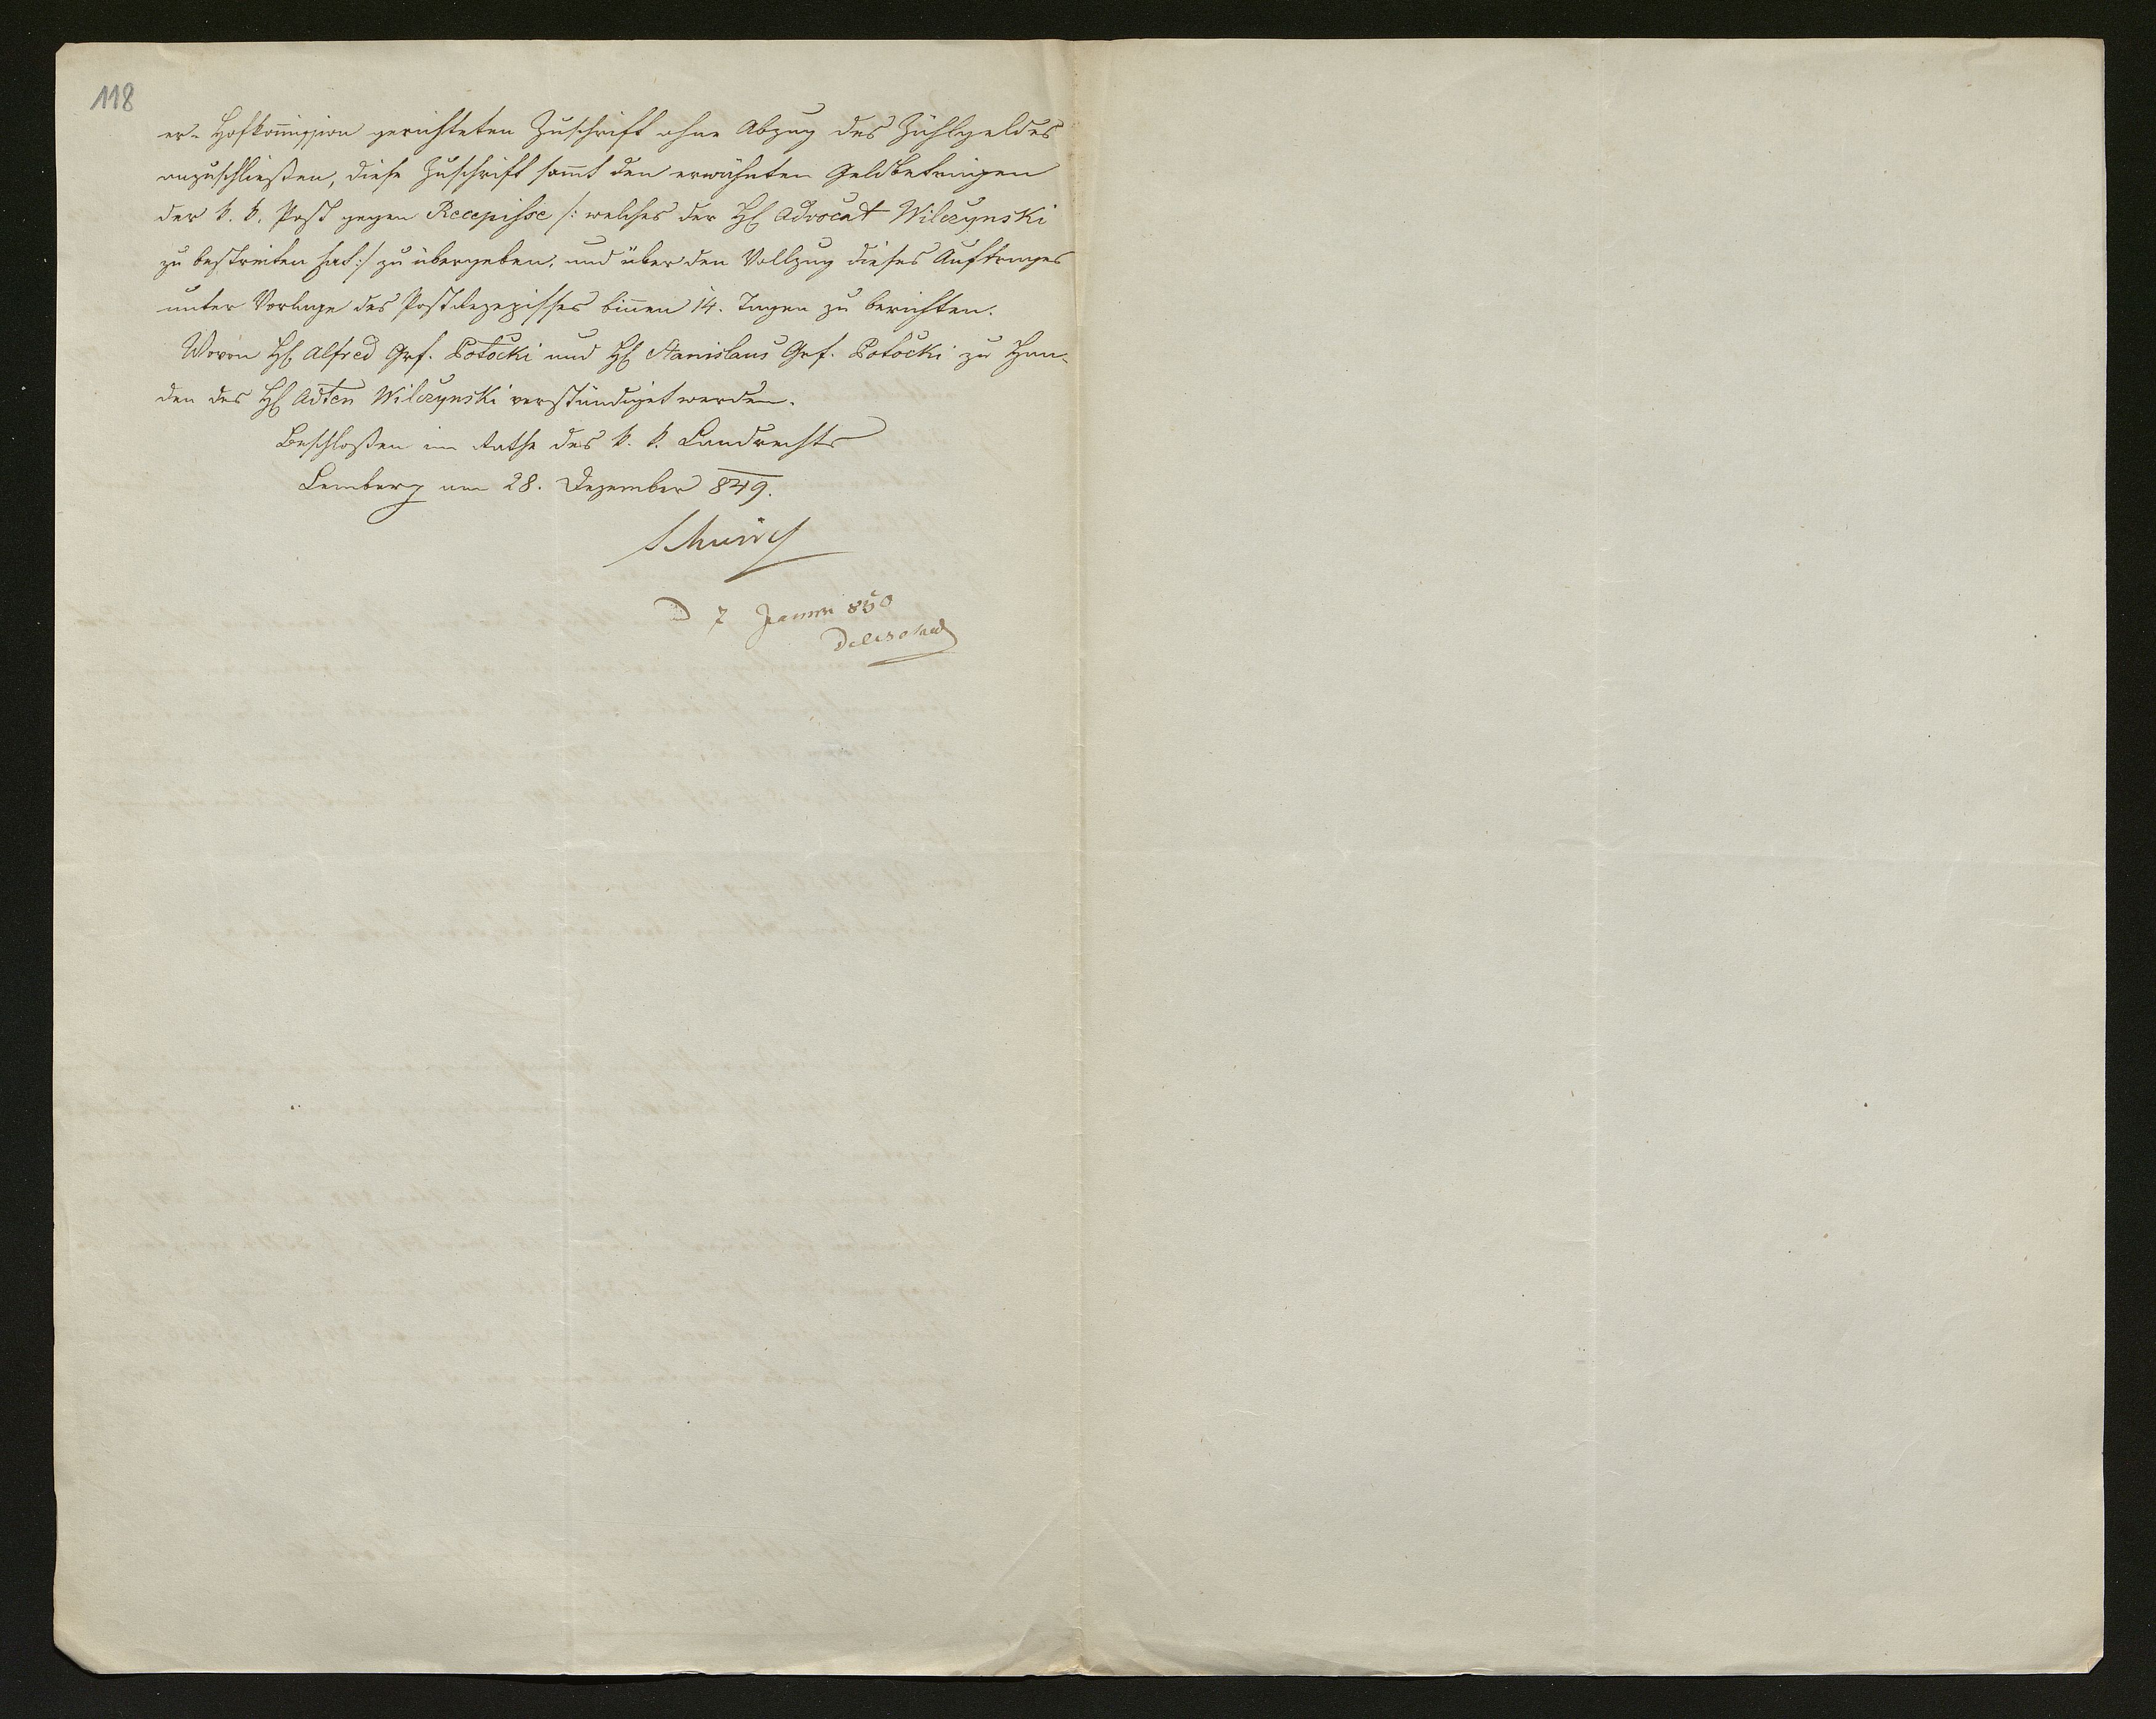 118
er- Hofkom̄ission gerichteten Zuschrift ohne Abzug des Zählgeldes
anzuschließen, diese Zuschrift sam̄t den erwähnten Geldbeträgen
der k. k. Post gegen Recepisse /: welches der H Advocat Wilczynski
zu bestreiten hat :/ zu übergeben, und über den Vollzug dieses Auftrages
unter Vorlage des Postrezepisses bin̄en 14. Tagen zu berichten.
Wovon H Alfred Grf. Potocki und H Stanislaus Grf. Potocki zu Han-
den des H Adten Wilczynski verständiget werden.
Beschloßen im Rathe des k. k. Landrechts
Lemberg am 28. Dezember 849.
D 7 850